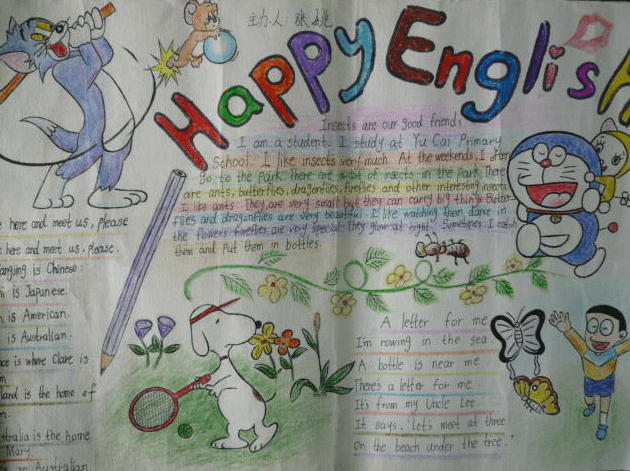 主办人:张姚
Happy English
Insects are our good friends
I am a student. I study at Yu Cai Primary
School. I like insects very much. At the weekends, I often
go to the park. There are a lot of insects in the park. There
are ants, butterflies, dragonflies, fireflies and other interesting insects.
I like ants. They are very small but they can carry big things. Butter-
flies and dragonflies are very beautiful. I like watching them dance in
the flowers. fireflies are very special. They glow at night. Sometimes I catch
them and put them in bottles.
here and meet us, please
here and meet us, please.
is Chinese.
is Japanese.
is American.
is Australian.
is where Clare is
is the home of
is the home
Mary.
an Australian.
A letter for me
I'm rowing in the sea.
A bottle is near me
There's a letter for me.
It's from my Uncle Lee
It says, Let's meet at three
On the beach under the tree.'